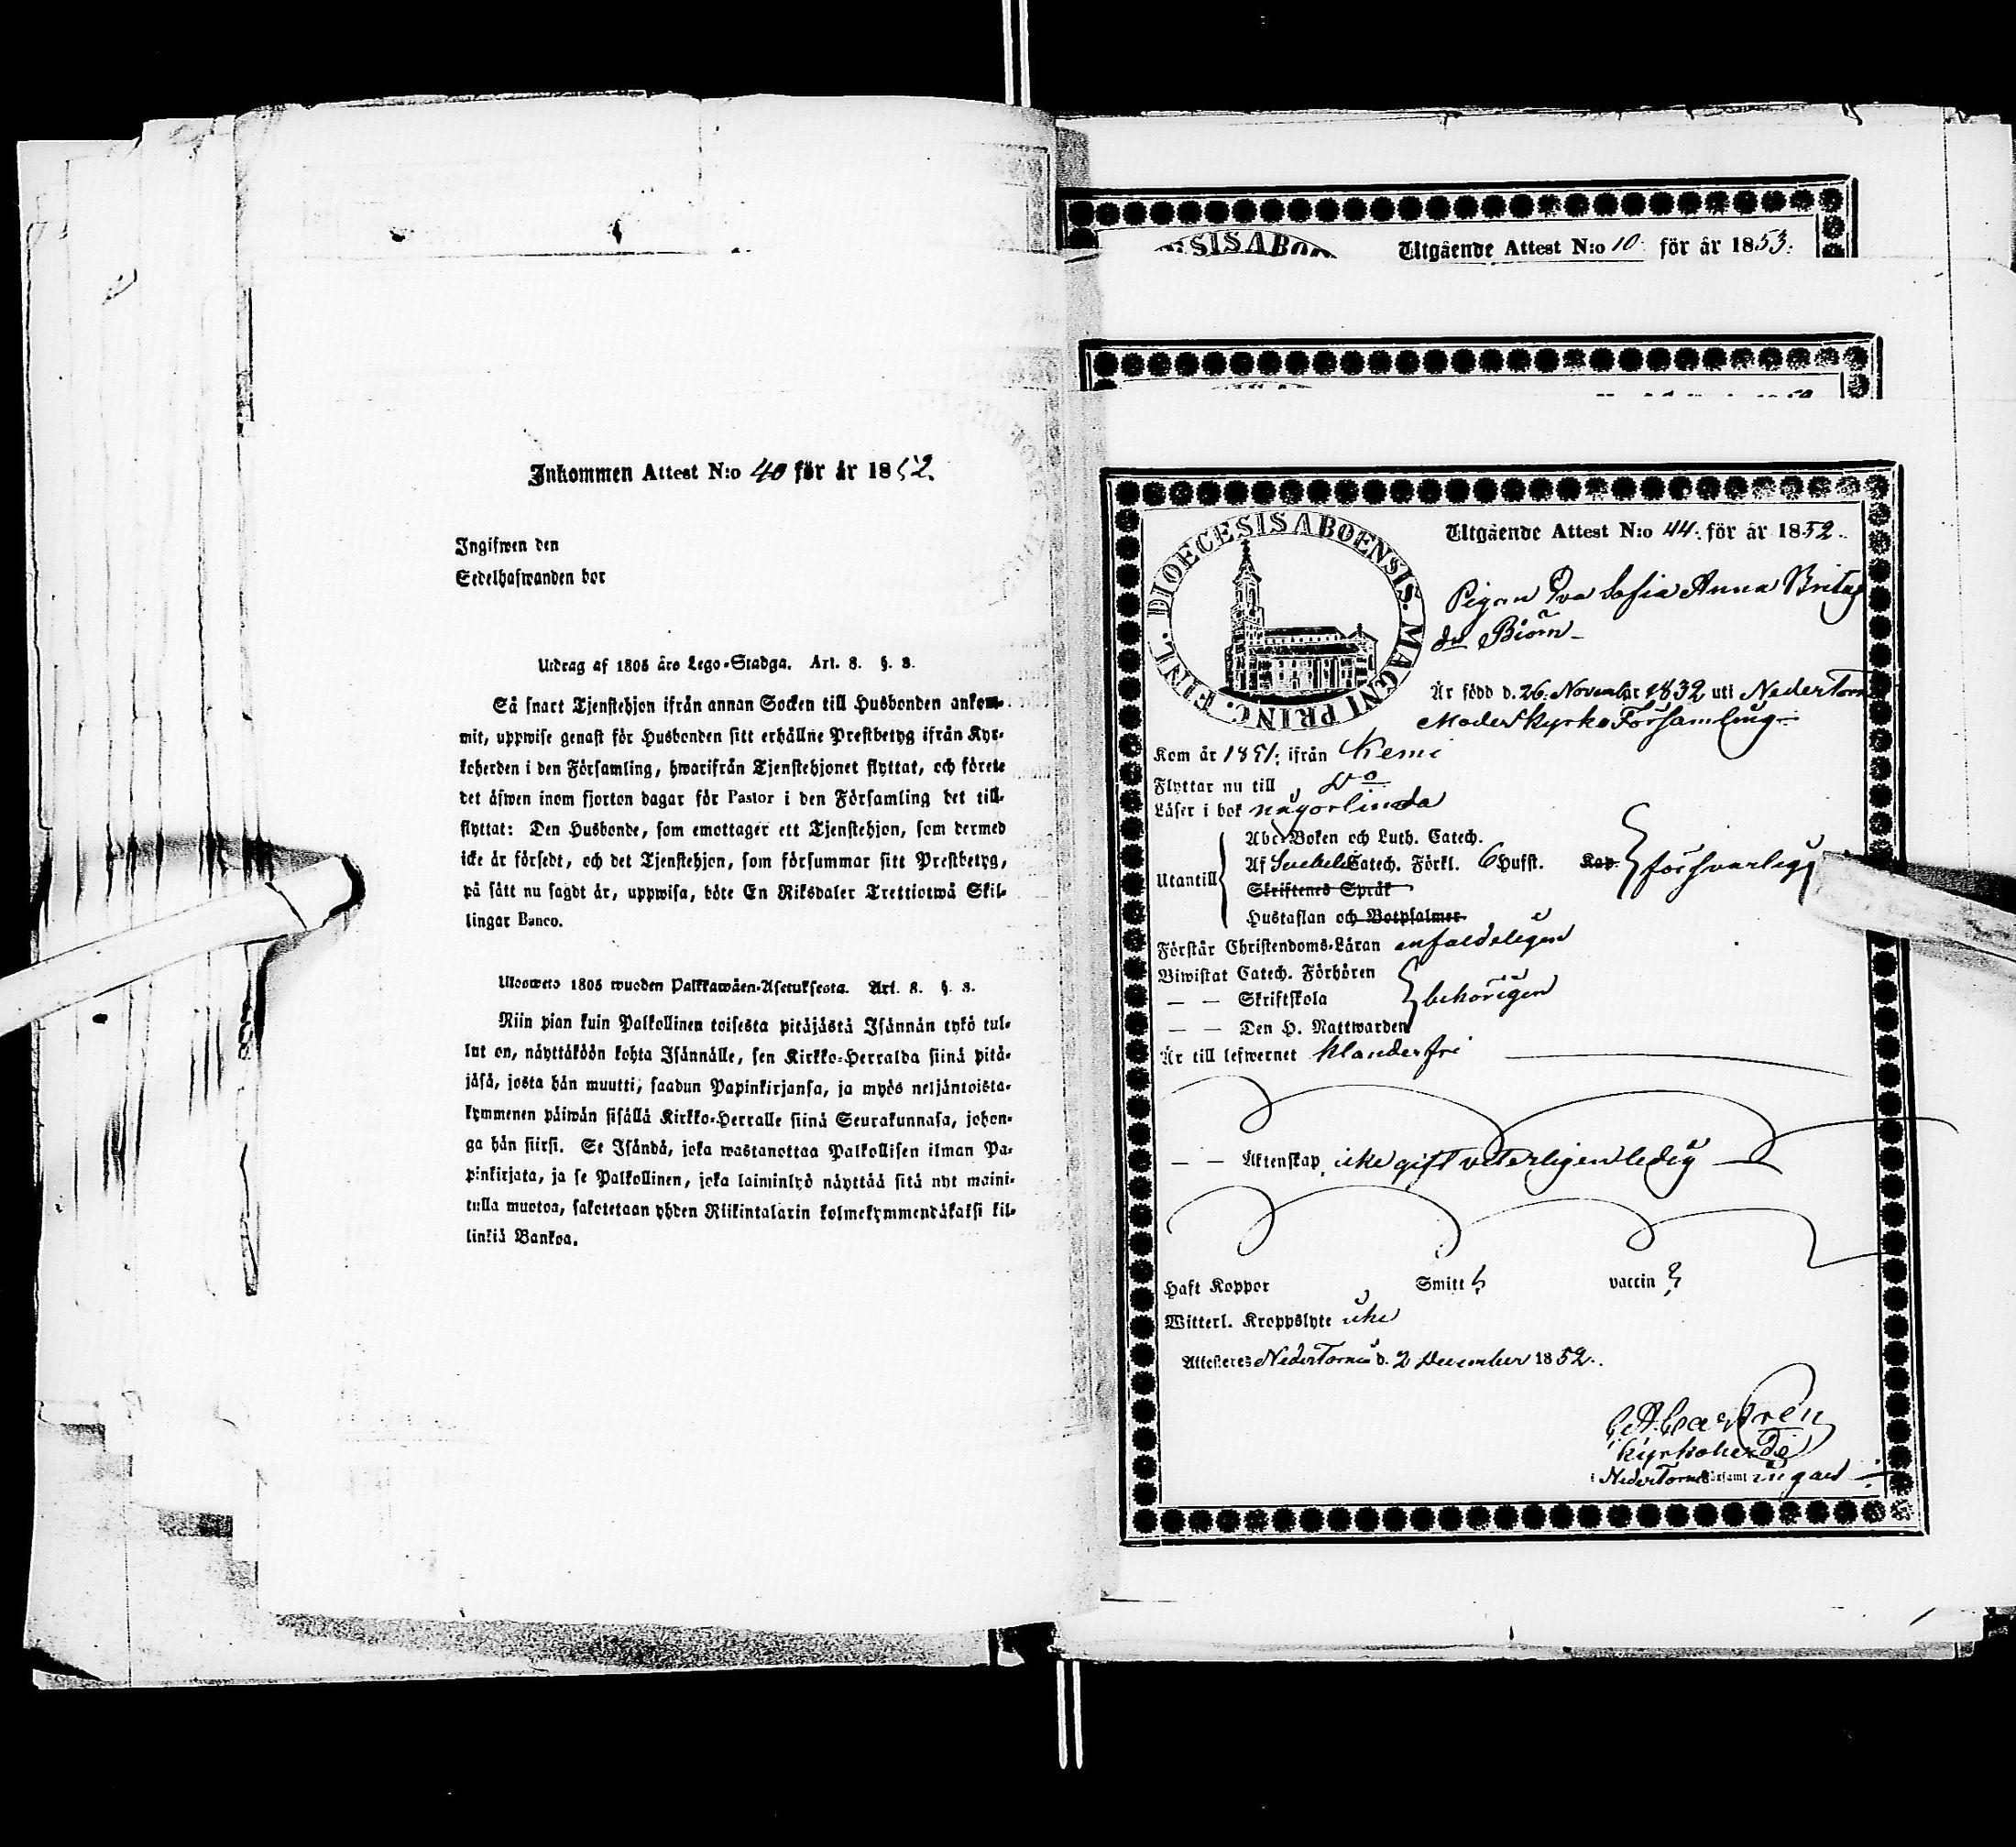 Inkommen Attest N:o 40 för år 1852.
Ingifwen den
Sedelhafwanden bor
Utdrag af 1805 års Lego-Stadga. Art. 8. §. 8.
Så snart Tjenstehjon ifrån annan Socken till Husbonden ankom-
mit, uppwise genast för Husbonden sitt erhållne Prestbetyg ifrån Kyr-
koherden i den Församling, hwarifrån Tjenstehjonet flyttat, och förete
det äfwen inom fjorton dagar för Pastor i den Församling det till-
flyttat: Den Husbonde, som emottager ett Tjenstehjon, som dermed
icke är försedt, och det Tjenstehjon, som försummar sitt Prestbetyg,
på sätt nu sagdt är, uppwisa, böte En Riksdaler Trettiotwå Skil-
lingar Banco.
Ulosweto 1805 wuoden Palkkawäen-Asetuksesta. Art. 8. §. 8.
Niin pian kuin Palkollinen toisesta pitäjästä Isännän tykö tul-
lut on, näyttäköön kohta Isännälle, sen Kirkko-Herralda siinä pitä-
jäsä, josta hän muutti, saadun Papinkirjansa, ja myös neljäntoista-
kymmenen päiwän sisällä Kirkko-Herralle siinä Seurakunnasa, johon-
ga hän siirsi. Se Isändä, joka wastanottaa Palkollisen ilman Pa-
pinkirjata, ja se Palkollinen, joka laiminlyö näyttää sitä nyt maini-
tulla muotoa, sakotetaan yhden Riikintalarin kolmekymmendäkaksi kil-
linkiä Bankoa.
SIS ABO
Utgående Attest N:o 10. för år 1853.
DIOECESIS ABOENSIS. MAGNI PRINC. FINL.
Utgående Attest N:o 44. för år 1852.
Pigan Eva Sofia Anna Brita
Biörn
Är född d. 26. November 1832 uti Neder Torn
Moderkyrko Församling
Kom år 1851. ifrån Kemi
Flyttar nu till Do
Läser i bok någorlunda
Utantill
Abc-Boken och Luth. Catech.
Af Svebelii Catech. Förkl. 6 Hufst. Kap. försvarligt
Skriftenes Språk
Hustaflan och Botpsalmer
Förstår Christendoms-Läran enfaldeligen
Biwistat Catech. Förhören
— — Skriftskola behörigen
— — Den H. Nattwarden
Är till lefwernet klanderfri
— — Äktenskap icke gift veterligen ledig
Haft Koppor Smitt vaccin
Witterl. Kroppslyte icke
Attesteres Neder Torneå d. 2 December 1852.
Castrén
Kyrkoherde
i Neder Torneå församlingar